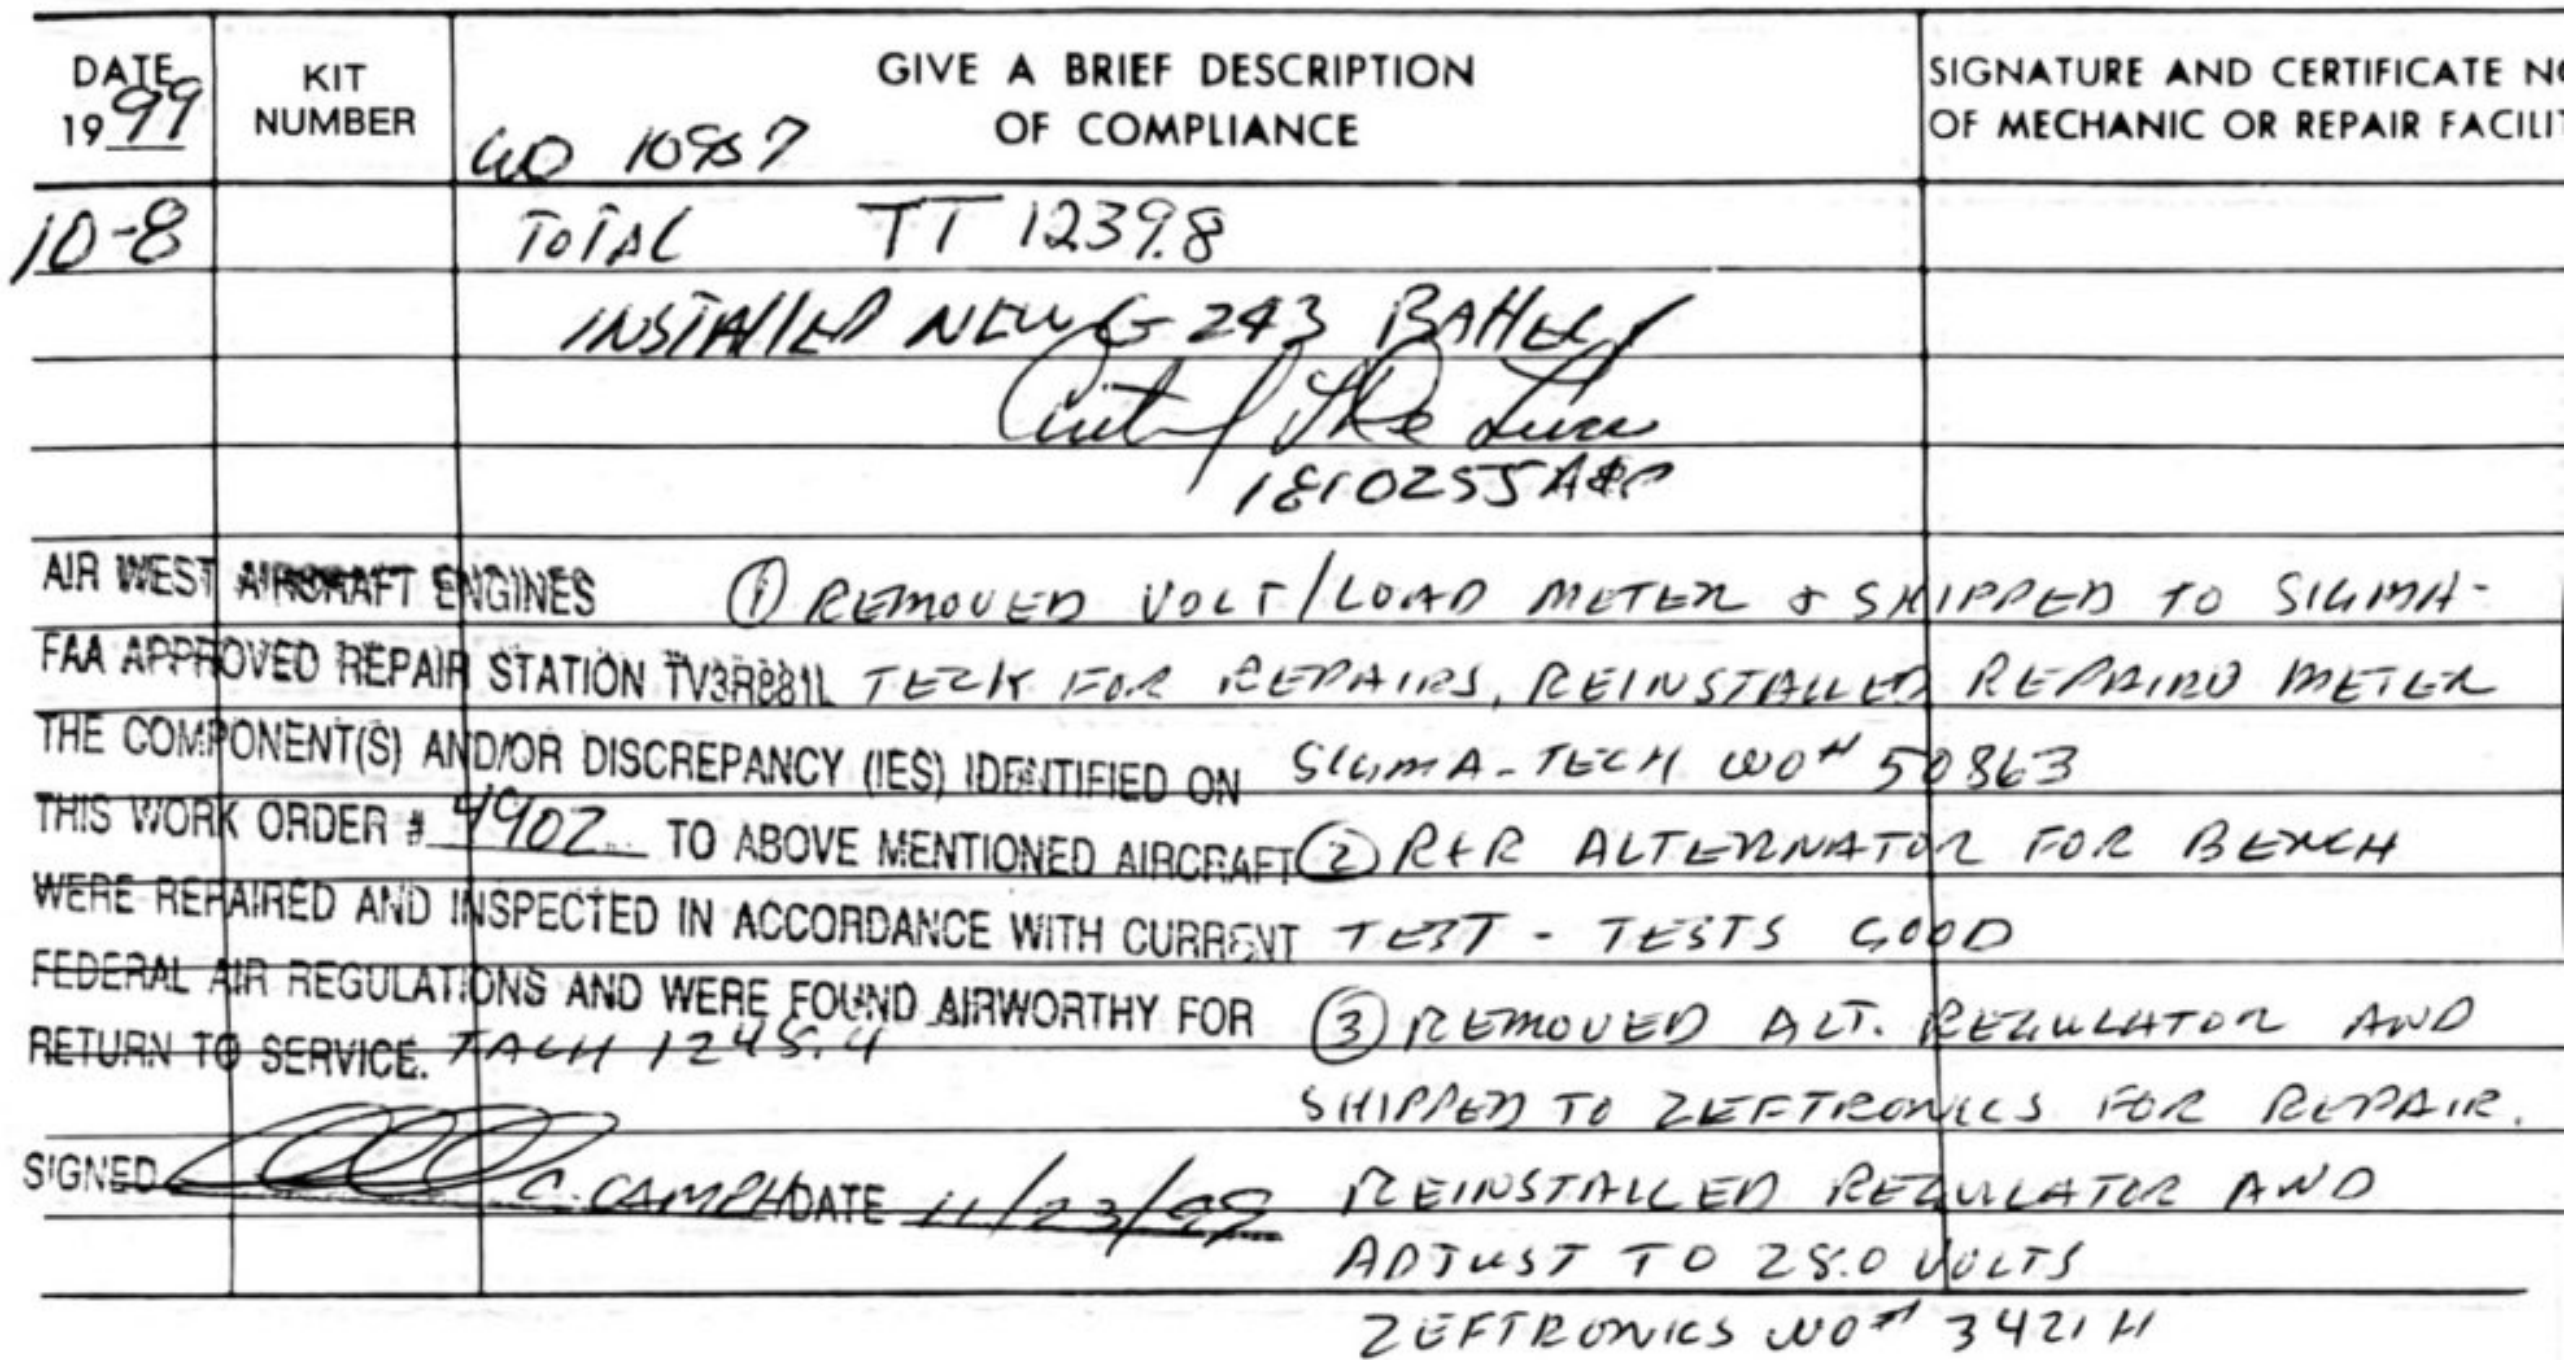 DATE
1999
KIT
NUMBER
GIVE A BRIEF DESCRIPTION
OF COMPLIANCE
WO 10957
SIGNATURE AND CERTIFICATE NO
OF MECHANIC OR REPAIR FACILIT
10-8
TOTAL TT 1239.8
INSTALLED NEW G 243
1810255 A&P
AIR WEST AIRCRAFT ENGINES
FAA APPROVED REPAIR STATION TV3R881L
THE COMPONENT(S) AND/OR DISCREPANCY (IES) IDENTIFIED ON
THIS WORK ORDER # 4902 TO ABOVE MENTIONED AIRCRAFT
WERE REPAIRED AND INSPECTED IN ACCORDANCE WITH CURRENT
FEDERAL AIR REGULATIONS AND WERE FOUND AIRWORTHY FOR
RETURN TO SERVICE. TACH 1245.4
SIGNED C. CAMPH DATE 11/23/99
① REMOVED VOLT/LOAD METER & SHIPPED TO SIGMA-
TECK FOR REPAIRS, REINSTALLED REPAIRD METER
SIGMA-TECH WO# 50863
② R&R ALTERNATOR FOR BENCH
TEST - TESTS GOOD
③ REMOVED ALT. REGULATOR AND
SHIPPED TO ZEFTRONICS FOR REPAIR.
REINSTALLED REGULATOR AND
ADJUST TO 28.0 VOLTS
ZEFTRONICS WO# 3421H